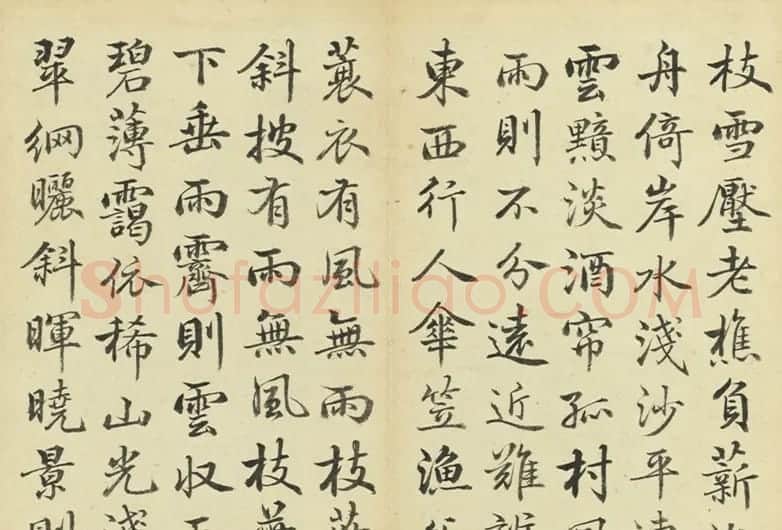 枝雪壓老樵負薪
舟倚岸水淺沙平
雲黯淡酒帘孤村
雨則不分遠近難
東西行人傘笠漁
蓑衣有風無雨枝
斜披有雨無風枝
下垂雨霽則雲收
碧薄靄依稀山光
翠網曬斜暉曉景
Shufaziliao.COM